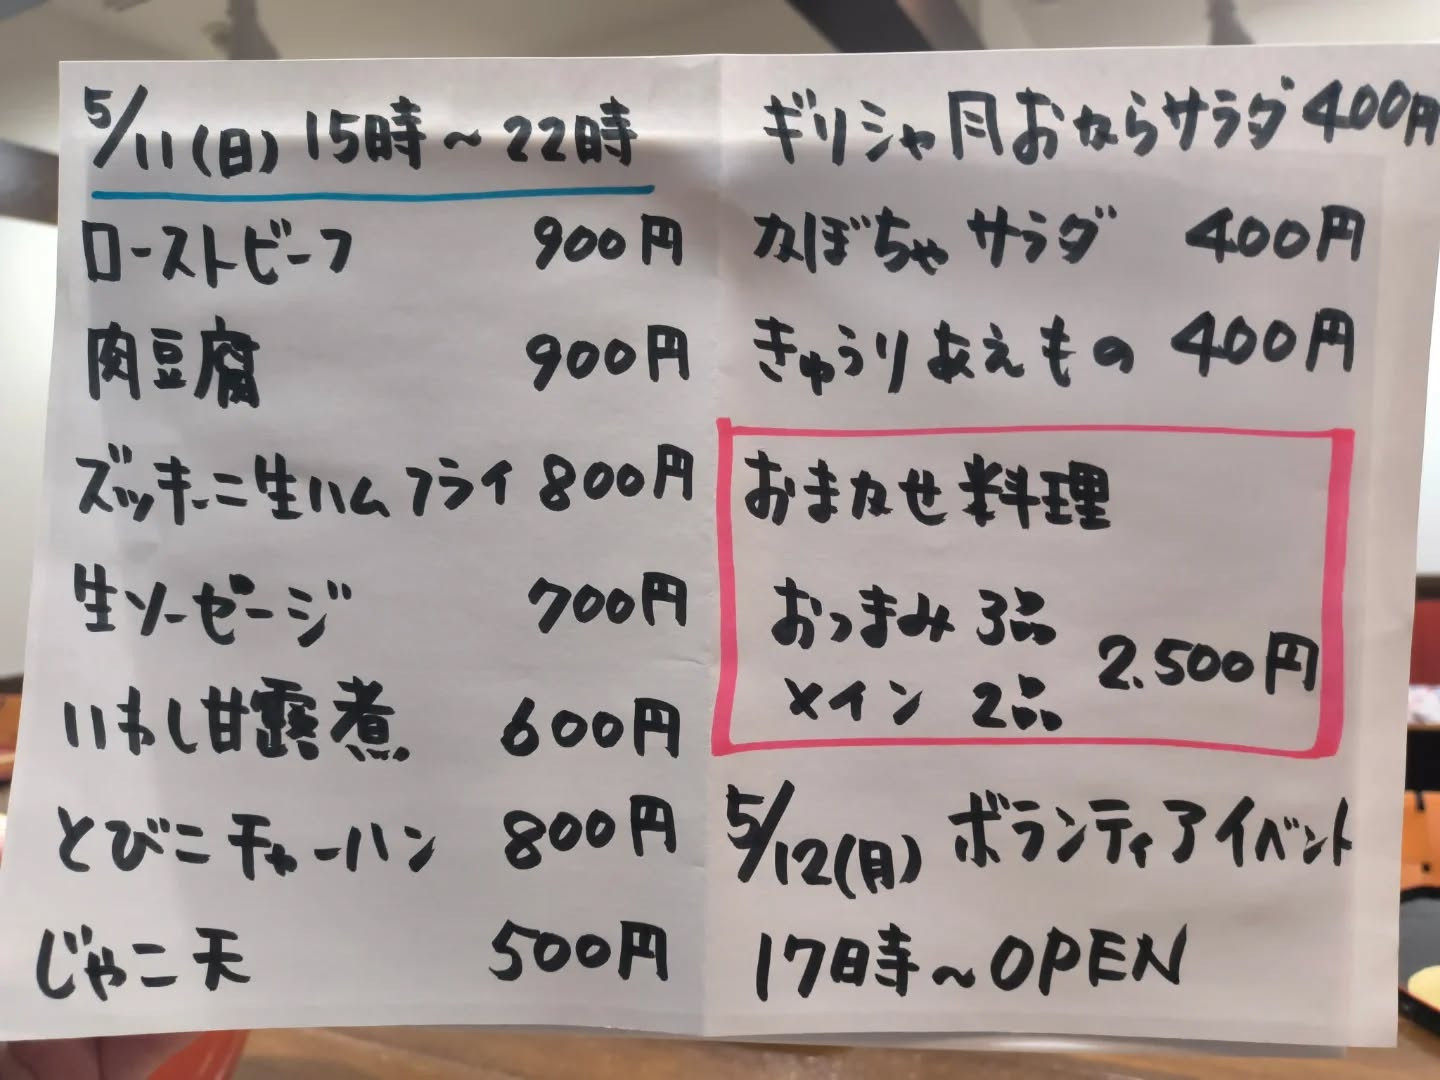 5/11(日) 15時～22時
ローストビーフ 900円
肉豆腐 900円
ズッキーニ生ハムフライ 800円
生ソーセージ 700円
いわし甘露煮 600円
とびこチャーハン 800円
じゃこ天 500円
ギリシャ月おならサラダ 400円
かぼちゃサラダ 400円
きゅうりあえもの 400円
おまかせ料理
おつまみ 3品
メイン 2品 2.500円
5/12(月) ボランティアイベント
17時～OPEN